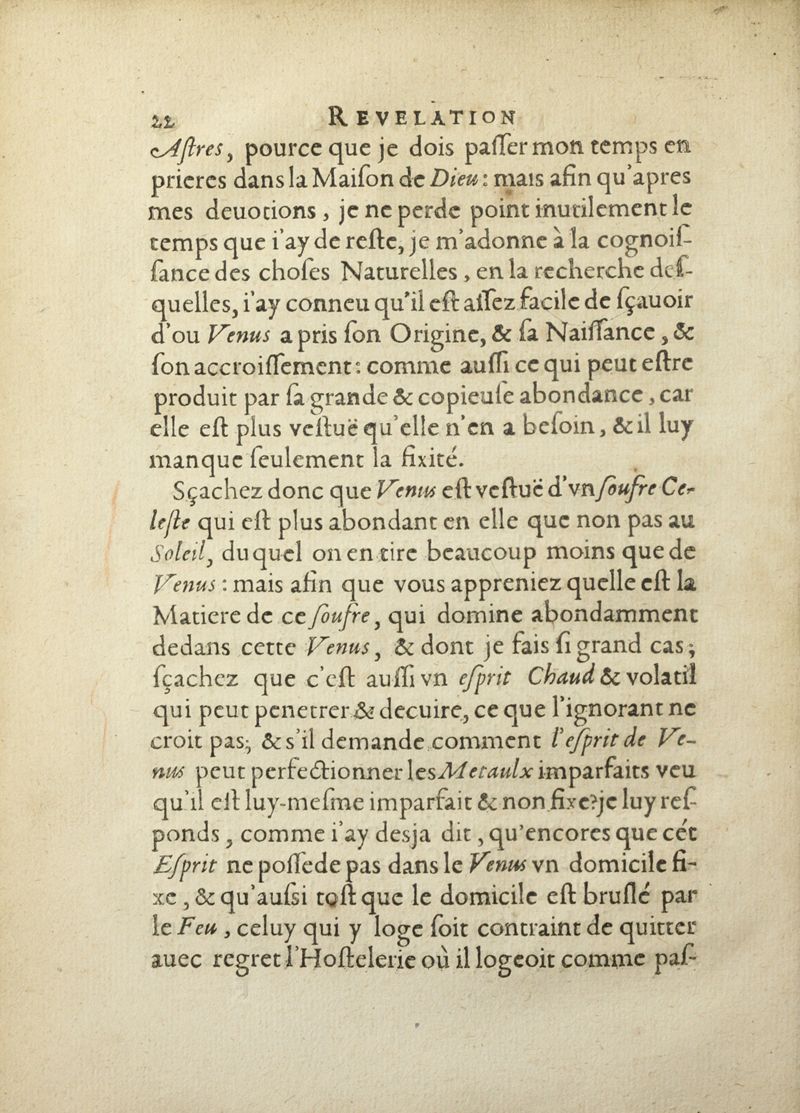 22 REVELATION
Aſtres, pource que je dois paſſer mon temps en
prieres dans la Maiſon de Dieu : mais afin qu'apres
mes deuotions, je ne perde point inutilement le
temps que i'ay de reſte, je m'adonne à la cognoiſ-
ſance des choſes Naturelles, en la recherche deſ-
quelles, i'ay conneu qu'il eſt aiſſez facile de ſçauoir
d'ou Venus a pris ſon Origine, & ſa Naiſſance, &
ſon accroiſſement : comme auſſi ce qui peut eſtre
produit par ſa grande & copieuſe abondance, car
elle eſt plus veſtuë qu'elle n'en a beſoin, & il luy
manque ſeulement la fixité.
Sçachez donc que Venus eſt veſtuë d'vn ſoufre Ce-
leſte qui eſt plus abondant en elle que non pas au
Soleil, duquel on en tire beaucoup moins que de
Venus : mais afin que vous appreniez quelle eſt la
Matiere de ce ſoufre, qui domine abondamment
dedans cette Venus, & dont je fais ſi grand cas;
ſçachez que c'eſt auſſi vn eſprit Chaud & volatil
qui peut penetrer & decuire, ce que l'ignorant ne
croit pas; & s'il demande comment l'eſprit de Ve-
nus peut perfectionner les Metaulx imparfaits veu
qu'il eſt luy-meſme imparfait & non fixe? je luy reſ-
ponds, comme i'ay desja dit, qu'encores que cét
Eſprit ne poſſede pas dans le Venus vn domicile fi-
xe, & qu'auſsi toſt que le domicile eſt bruſlé par
le Feu, celuy qui y loge ſoit contraint de quitter
auec regret l'Hoſtelerie où il logeoit comme paſ-